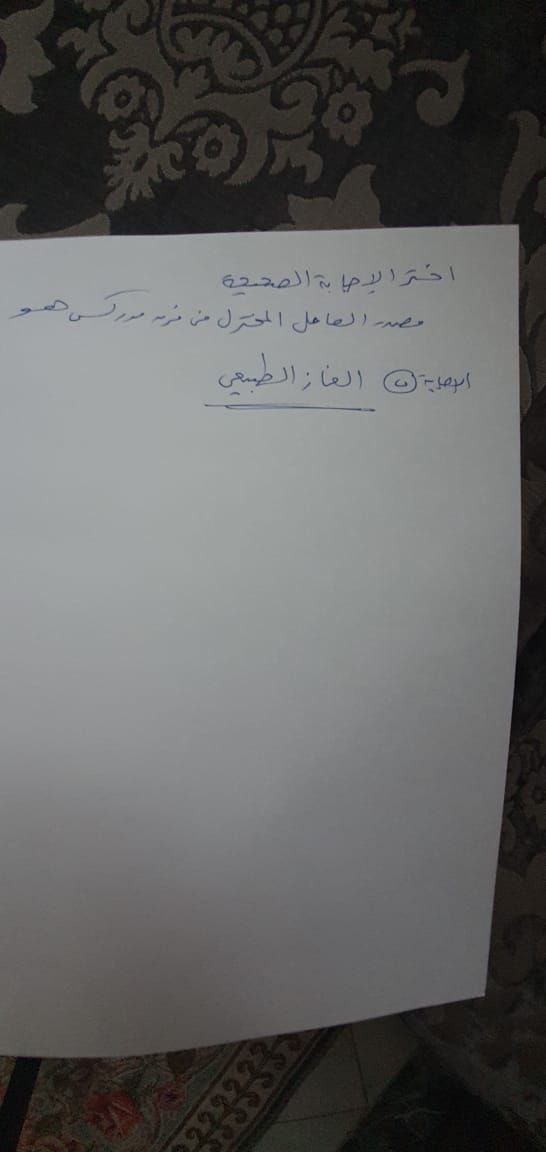 اختر الإجابة الصحيحة
مصدر العامل المختزل من فرن مدركس هو
الإجابة (ب) الغاز الطبيعي